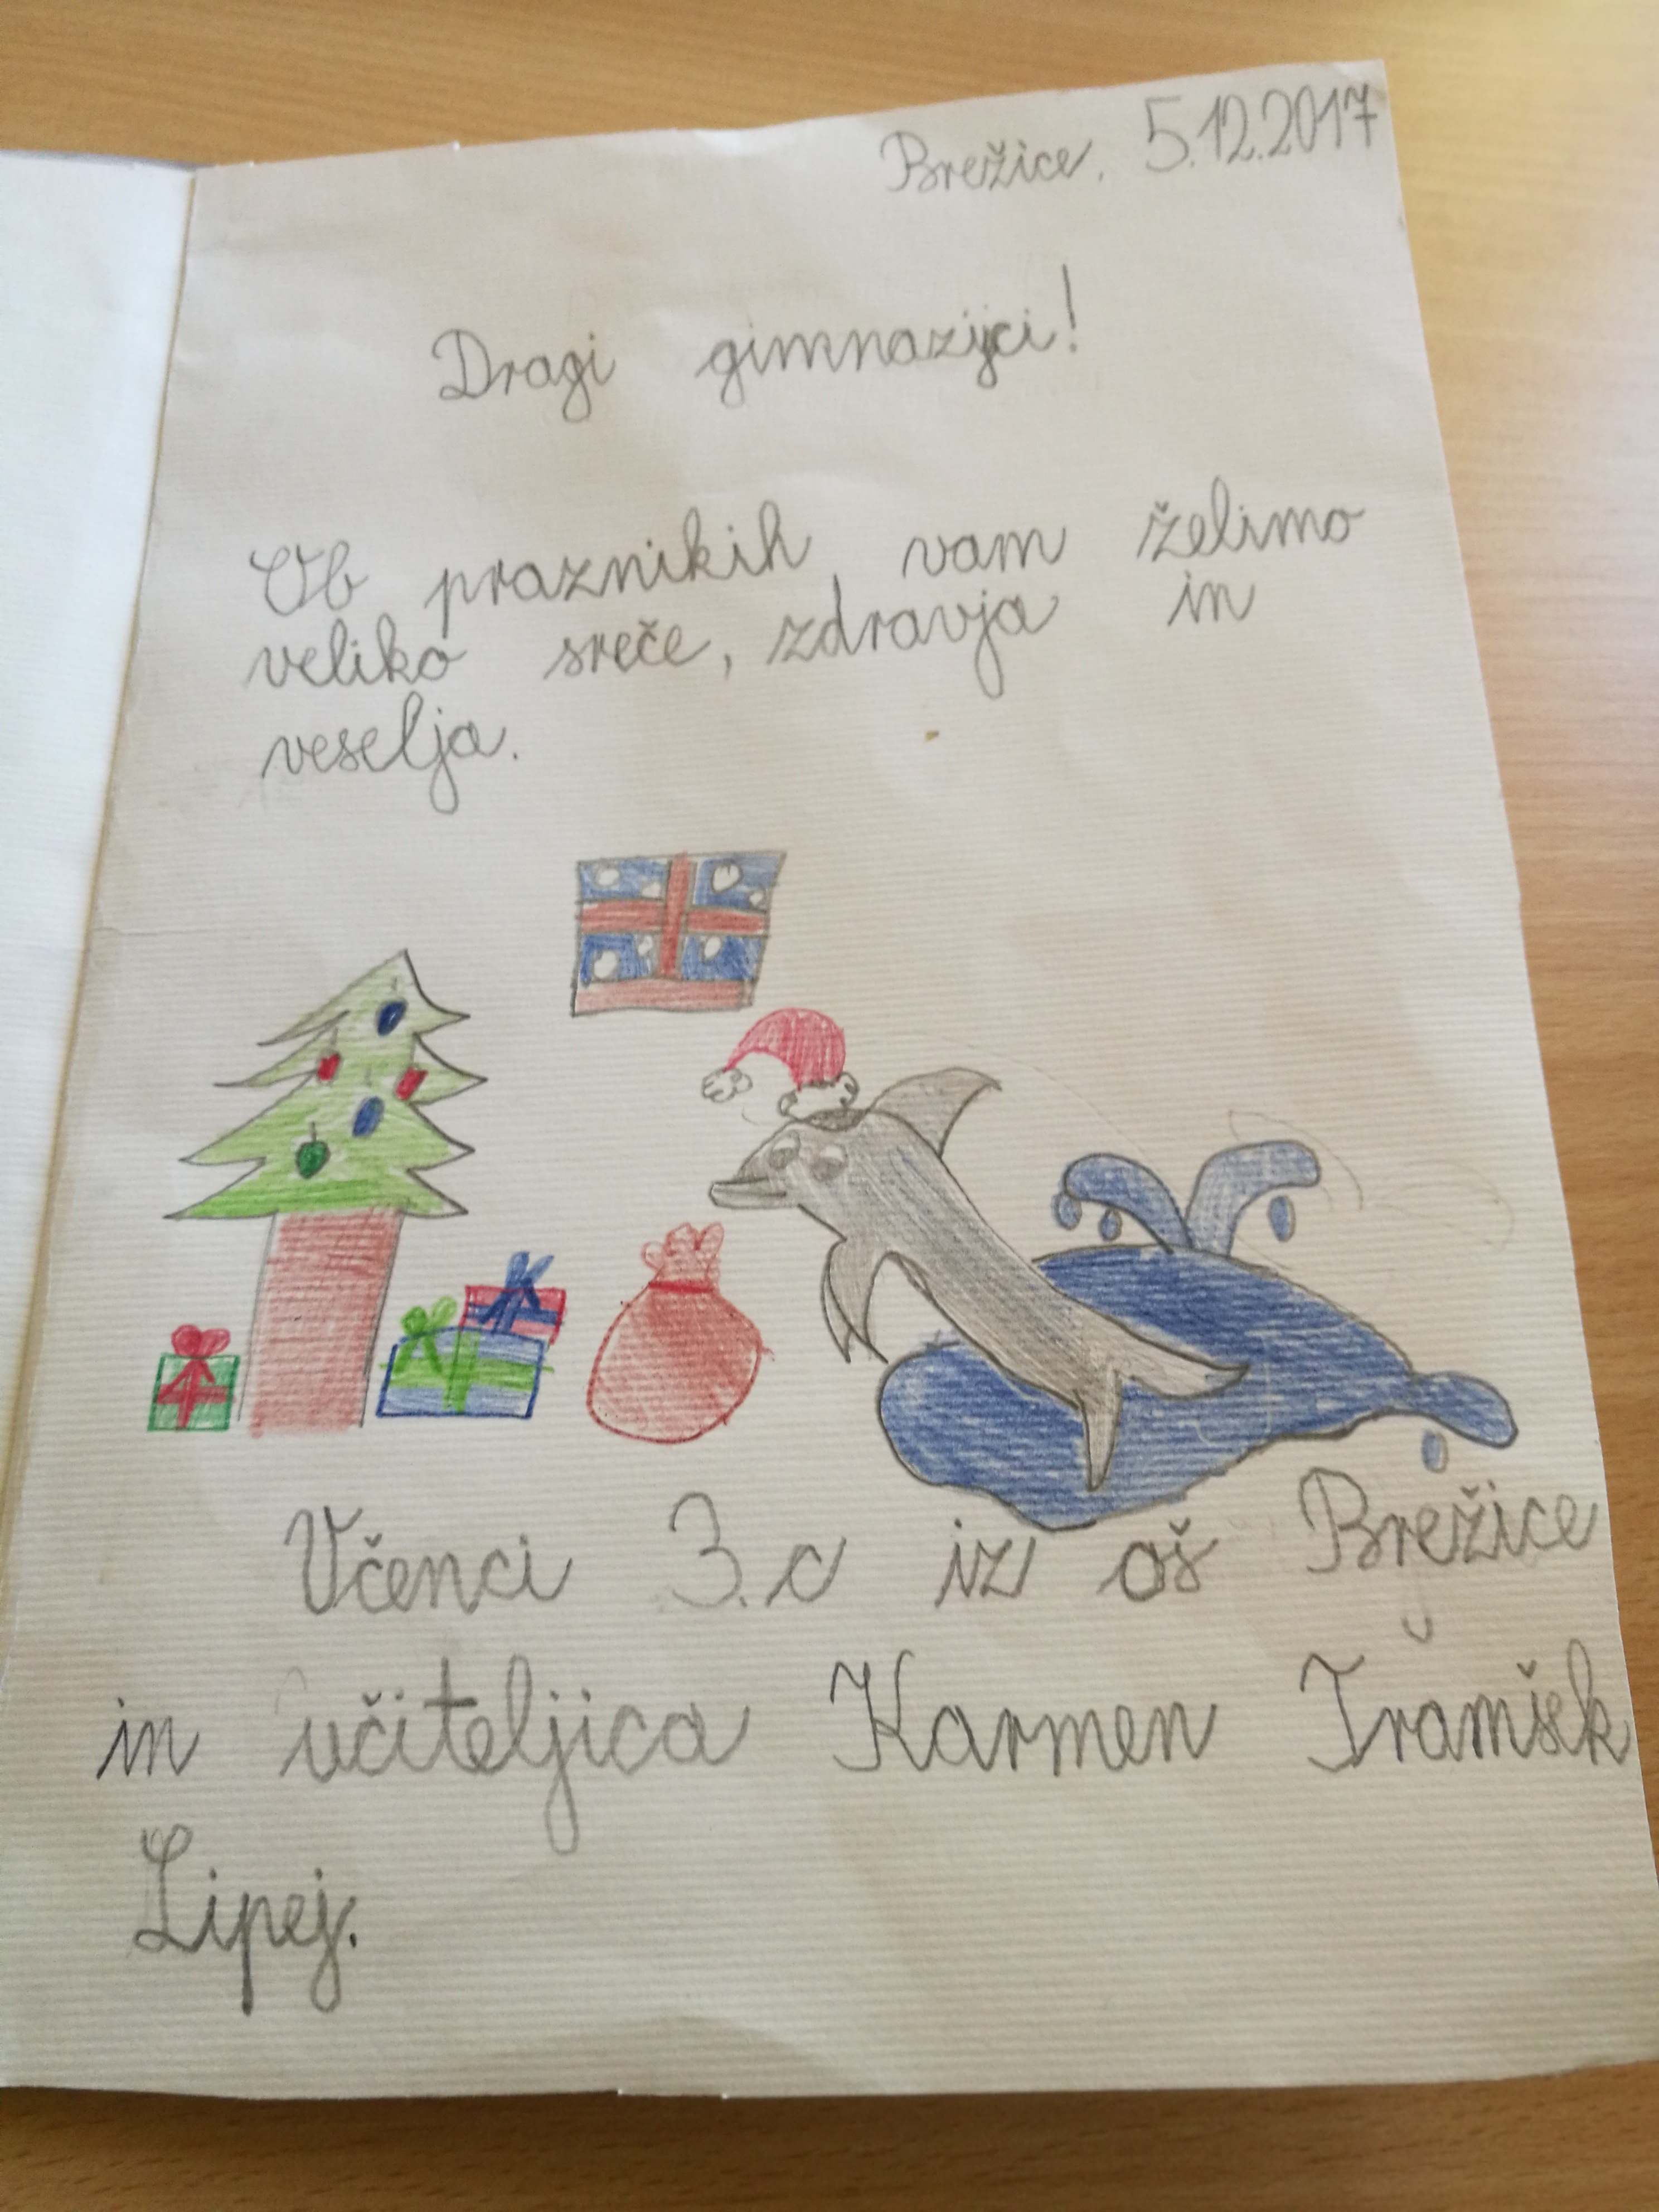 Brežice, 5.12.2017
Dragi gimnazijci!
Ob praznikih vam želimo
veliko sreče, zdravja in
veselja.
Učenci 3.c iz oš Brežice
in učiteljica Karmen
Lipej.